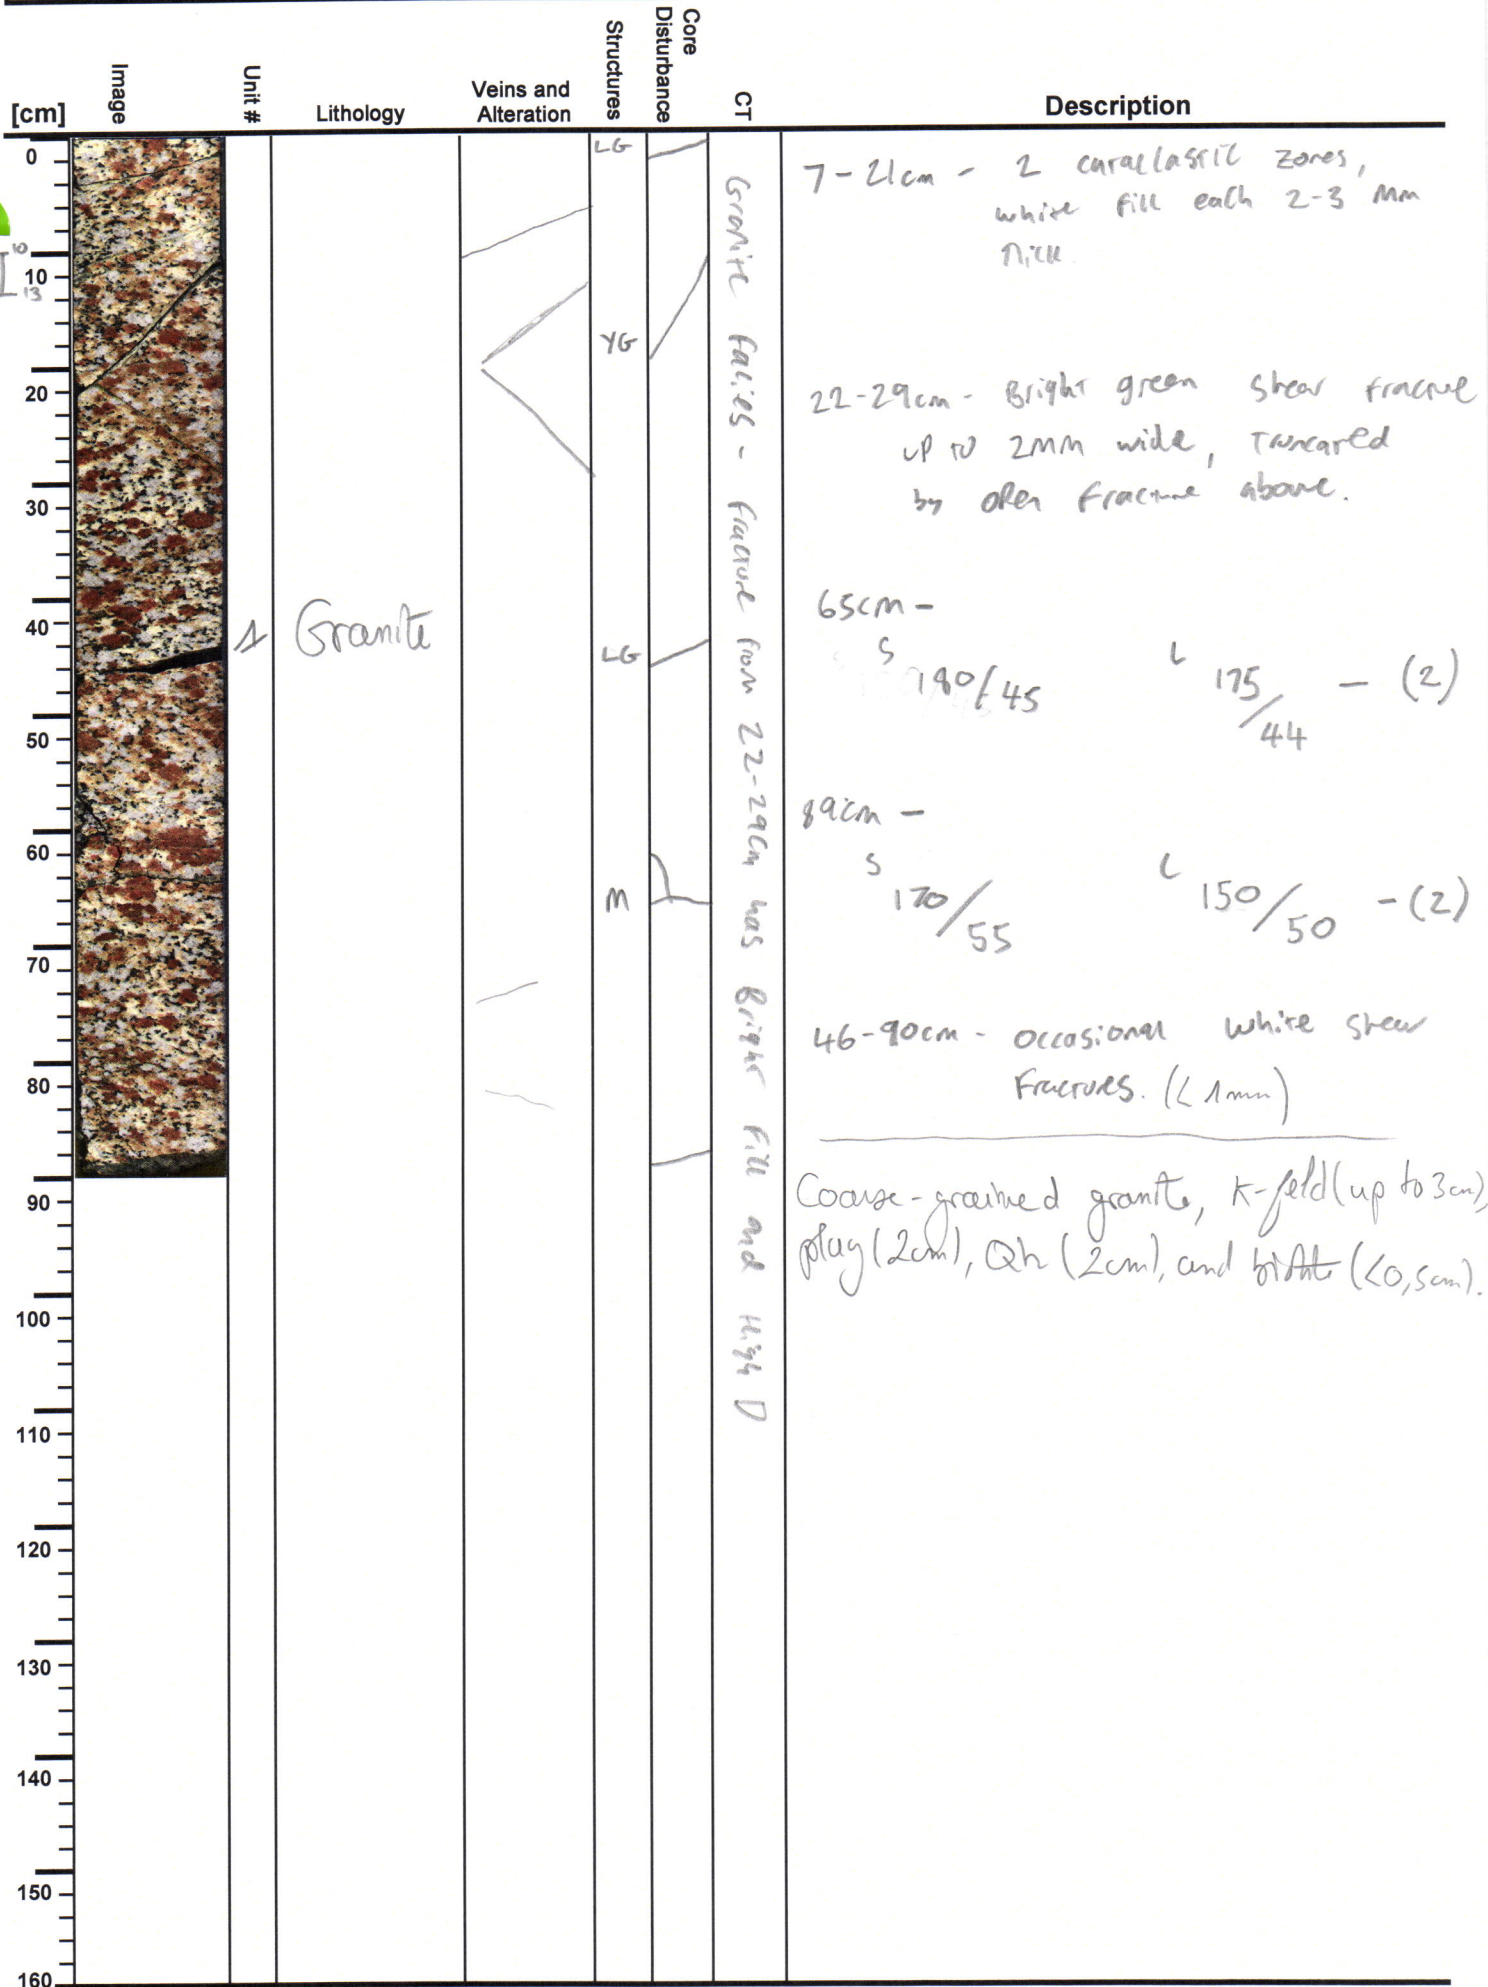 [cm]
Image
Unit #
Lithology
Veins and
Alteration
Structures
Core
Disturbance
CT
Description
0
10
10
13
20
30
40
50
60
70
80
90
100
110
120
130
140
150
160
1
Granite
LG
YG
LG
M
Granite facies - fracture from 22-29cm has Bright Fill and High D
7-21cm - 2 cataclastic zones,
white fill each 2-3 mm
thick
22-29cm - Bright green shear fracture
up to 2mm wide, Truncated
by open fracture above.
65cm -
S 180/45 L 175/44 - (2)
89cm -
S 170/55 L 150/50 - (2)
46-90cm - occasional white shear
Fractures. (<1mm)
Coarse-grained granite, K-feld (up to 3cm),
plag (2cm), Qtz (2cm), and biotite (<0,5cm).